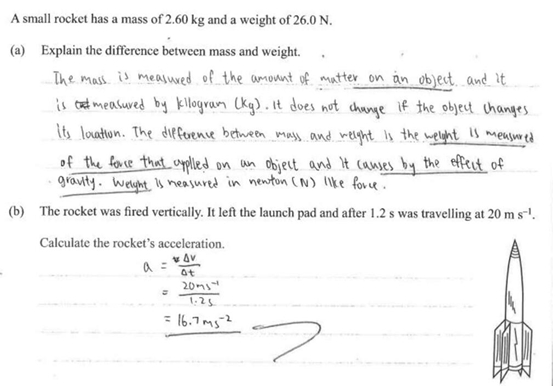 A small rocket has a mass of 2.60 kg and a weight of 26.0 N.
(a) Explain the difference between mass and weight.
The mass is measured of the amount of matter on an object and it
is measured by kilogram (kg). It does not change if the object changes
its location. The difference between mass and weight is the weight is measured
of the force that applied on an object and it causes by the effect of
gravity. Weight is measured in newton (N) like force.
(b) The rocket was fired vertically. It left the launch pad and after 1.2 s was travelling at 20 m s⁻¹.
Calculate the rocket's acceleration.
a = Δv
Δt
= 20ms⁻¹
1.2s
= 16.7ms⁻²